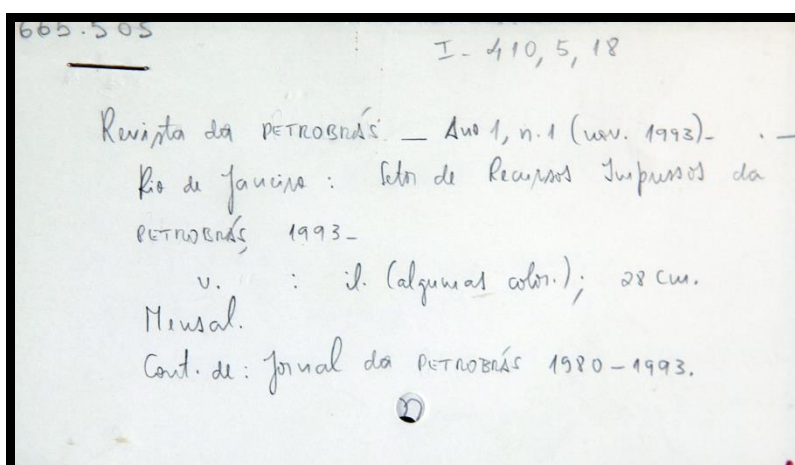 665.505
I-410,5,18
Revista da PETROBRÁS — Ano 1, n.1 (nov. 1993)- . —
Rio de Janeiro : Setor de Recursos Impressos da
PETROBRÁS, 1993-
v. : il. (algumas color.); 28 cm.
Mensal.
Cont. de: Jornal da PETROBRÁS 1980-1993.